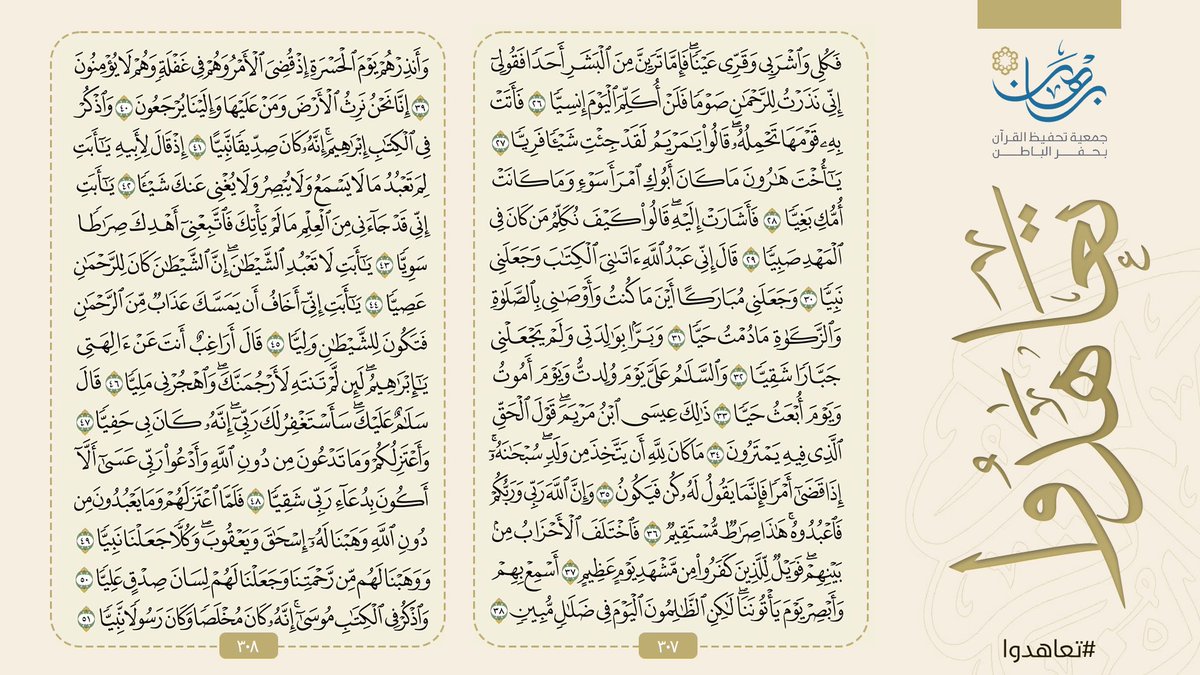 فَكُلِي وَٱشۡرَبِي وَقَرِّي عَيۡنٗاۖ فَإِمَّا تَرَيِنَّ مِنَ ٱلۡبَشَرِ أَحَدٗا فَقُولِيٓ
إِنِّي نَذَرۡتُ لِلرَّحۡمَٰنِ صَوۡمٗا فَلَنۡ أُكَلِّمَ ٱلۡيَوۡمَ إِنسِيّٗا ٢٦ فَأَتَتۡ
بِهِۦ قَوۡمَهَا تَحۡمِلُهُۥۖ قَالُواْ يَٰمَرۡيَمُ لَقَدۡ جِئۡتِ شَيۡـٔٗا فَرِيّٗا ٢٧
يَٰٓأُخۡتَ هَٰرُونَ مَا كَانَ أَبُوكِ ٱمۡرَأَ سَوۡءٖ وَمَا كَانَتۡ
أُمُّكِ بَغِيّٗا ٢٨ فَأَشَارَتۡ إِلَيۡهِۖ قَالُواْ كَيۡفَ نُكَلِّمُ مَن كَانَ فِي
ٱلۡمَهۡدِ صَبِيّٗا ٢٩ قَالَ إِنِّي عَبۡدُ ٱللَّهِ ءَاتَىٰنِيَ ٱلۡكِتَٰبَ وَجَعَلَنِي
نَبِيّٗا ٣٠ وَجَعَلَنِي مُبَارَكًا أَيۡنَ مَا كُنتُ وَأَوۡصَٰنِي بِٱلصَّلَوٰةِ
وَٱلزَّكَوٰةِ مَا دُمۡتُ حَيّٗا ٣١ وَبَرَّۢا بِوَٰلِدَتِي وَلَمۡ يَجۡعَلۡنِي
جَبَّارٗا شَقِيّٗا ٣٢ وَٱلسَّلَٰمُ عَلَيَّ يَوۡمَ وُلِدتُّ وَيَوۡمَ أَمُوتُ
وَيَوۡمَ أُبۡعَثُ حَيّٗا ٣٣ ذَٰلِكَ عِيسَى ٱبۡنُ مَرۡيَمَۖ قَوۡلَ ٱلۡحَقِّ
ٱلَّذِي فِيهِ يَمۡتَرُونَ ٣٤ مَا كَانَ لِلَّهِ أَن يَتَّخِذَ مِن وَلَدٖۖ سُبۡحَٰنَهُۥٓۚ
إِذَا قَضَىٰٓ أَمۡرٗا فَإِنَّمَا يَقُولُ لَهُۥ كُن فَيَكُونُ ٣٥ وَإِنَّ ٱللَّهَ رَبِّي وَرَبُّكُمۡ
فَٱعۡبُدُوهُۚ هَٰذَا صِرَٰطٞ مُّسۡتَقِيمٞ ٣٦ فَٱخۡتَلَفَ ٱلۡأَحۡزَابُ مِنۢ
بَيۡنِهِمۡۖ فَوَيۡلٞ لِّلَّذِينَ كَفَرُواْ مِن مَّشۡهَدِ يَوۡمٍ عَظِيمٍ ٣٧ أَسۡمِعۡ بِهِمۡ
وَأَبۡصِرۡ يَوۡمَ يَأۡتُونَنَاۖ لَٰكِنِ ٱلظَّٰلِمُونَ ٱلۡيَوۡمَ فِي ضَلَٰلٖ مُّبِينٖ ٣٨
٣٠٧
وَأَنذِرۡهُمۡ يَوۡمَ ٱلۡحَسۡرَةِ إِذۡ قُضِيَ ٱلۡأَمۡرُ وَهُمۡ فِي غَفۡلَةٖ وَهُمۡ لَا يُؤۡمِنُونَ
٣٩ إِنَّا نَحۡنُ نَرِثُ ٱلۡأَرۡضَ وَمَنۡ عَلَيۡهَا وَإِلَيۡنَا يُرۡجَعُونَ ٤٠ وَٱذۡكُرۡ
فِي ٱلۡكِتَٰبِ إِبۡرَٰهِيمَۚ إِنَّهُۥ كَانَ صِدِّيقٗا نَّبِيّٗا ٤١ إِذۡ قَالَ لِأَبِيهِ يَٰٓأَبَتِ
لِمَ تَعۡبُدُ مَا لَا يَسۡمَعُ وَلَا يُبۡصِرُ وَلَا يُغۡنِي عَنكَ شَيۡـٔٗا ٤٢ يَٰٓأَبَتِ
إِنِّي قَدۡ جَآءَنِي مِنَ ٱلۡعِلۡمِ مَا لَمۡ يَأۡتِكَ فَٱتَّبِعۡنِيٓ أَهۡدِكَ صِرَٰطٗا
سَوِيّٗا ٤٣ يَٰٓأَبَتِ لَا تَعۡبُدِ ٱلشَّيۡطَٰنَۖ إِنَّ ٱلشَّيۡطَٰنَ كَانَ لِلرَّحۡمَٰنِ
عَصِيّٗا ٤٤ يَٰٓأَبَتِ إِنِّيٓ أَخَافُ أَن يَمَسَّكَ عَذَابٞ مِّنَ ٱلرَّحۡمَٰنِ
فَتَكُونَ لِلشَّيۡطَٰنِ وَلِيّٗا ٤٥ قَالَ أَرَاغِبٌ أَنتَ عَنۡ ءَالِهَتِي
يَٰٓإِبۡرَٰهِيمُۖ لَئِن لَّمۡ تَنتَهِ لَأَرۡجُمَنَّكَۖ وَٱهۡجُرۡنِي مَلِيّٗا ٤٦ قَالَ
سَلَٰمٌ عَلَيۡكَۖ سَأَسۡتَغۡفِرُ لَكَ رَبِّيٓۖ إِنَّهُۥ كَانَ بِي حَفِيّٗا ٤٧
وَأَعۡتَزِلُكُمۡ وَمَا تَدۡعُونَ مِن دُونِ ٱللَّهِ وَأَدۡعُواْ رَبِّي عَسَىٰٓ أَلَّآ
أَكُونَ بِدُعَآءِ رَبِّي شَقِيّٗا ٤٨ فَلَمَّا ٱعۡتَزَلَهُمۡ وَمَا يَعۡبُدُونَ مِن
دُونِ ٱللَّهِ وَهَبۡنَا لَهُۥٓ إِسۡحَٰقَ وَيَعۡقُوبَۖ وَكُلّٗا جَعَلۡنَا نَبِيّٗا ٤٩
وَوَهَبۡنَا لَهُم مِّن رَّحۡمَتِنَا وَجَعَلۡنَا لَهُمۡ لِسَانَ صِدۡقٍ عَلِيّٗا ٥٠
وَٱذۡكُرۡ فِي ٱلۡكِتَٰبِ مُوسَىٰٓۚ إِنَّهُۥ كَانَ مُخۡلَصٗا وَكَانَ رَسُولٗا نَّبِيّٗا ٥١
٣٠٨
برهان
جمعية تحفيظ القرآن
بحفر الباطن
تعاهدوا
#تعاهدوا